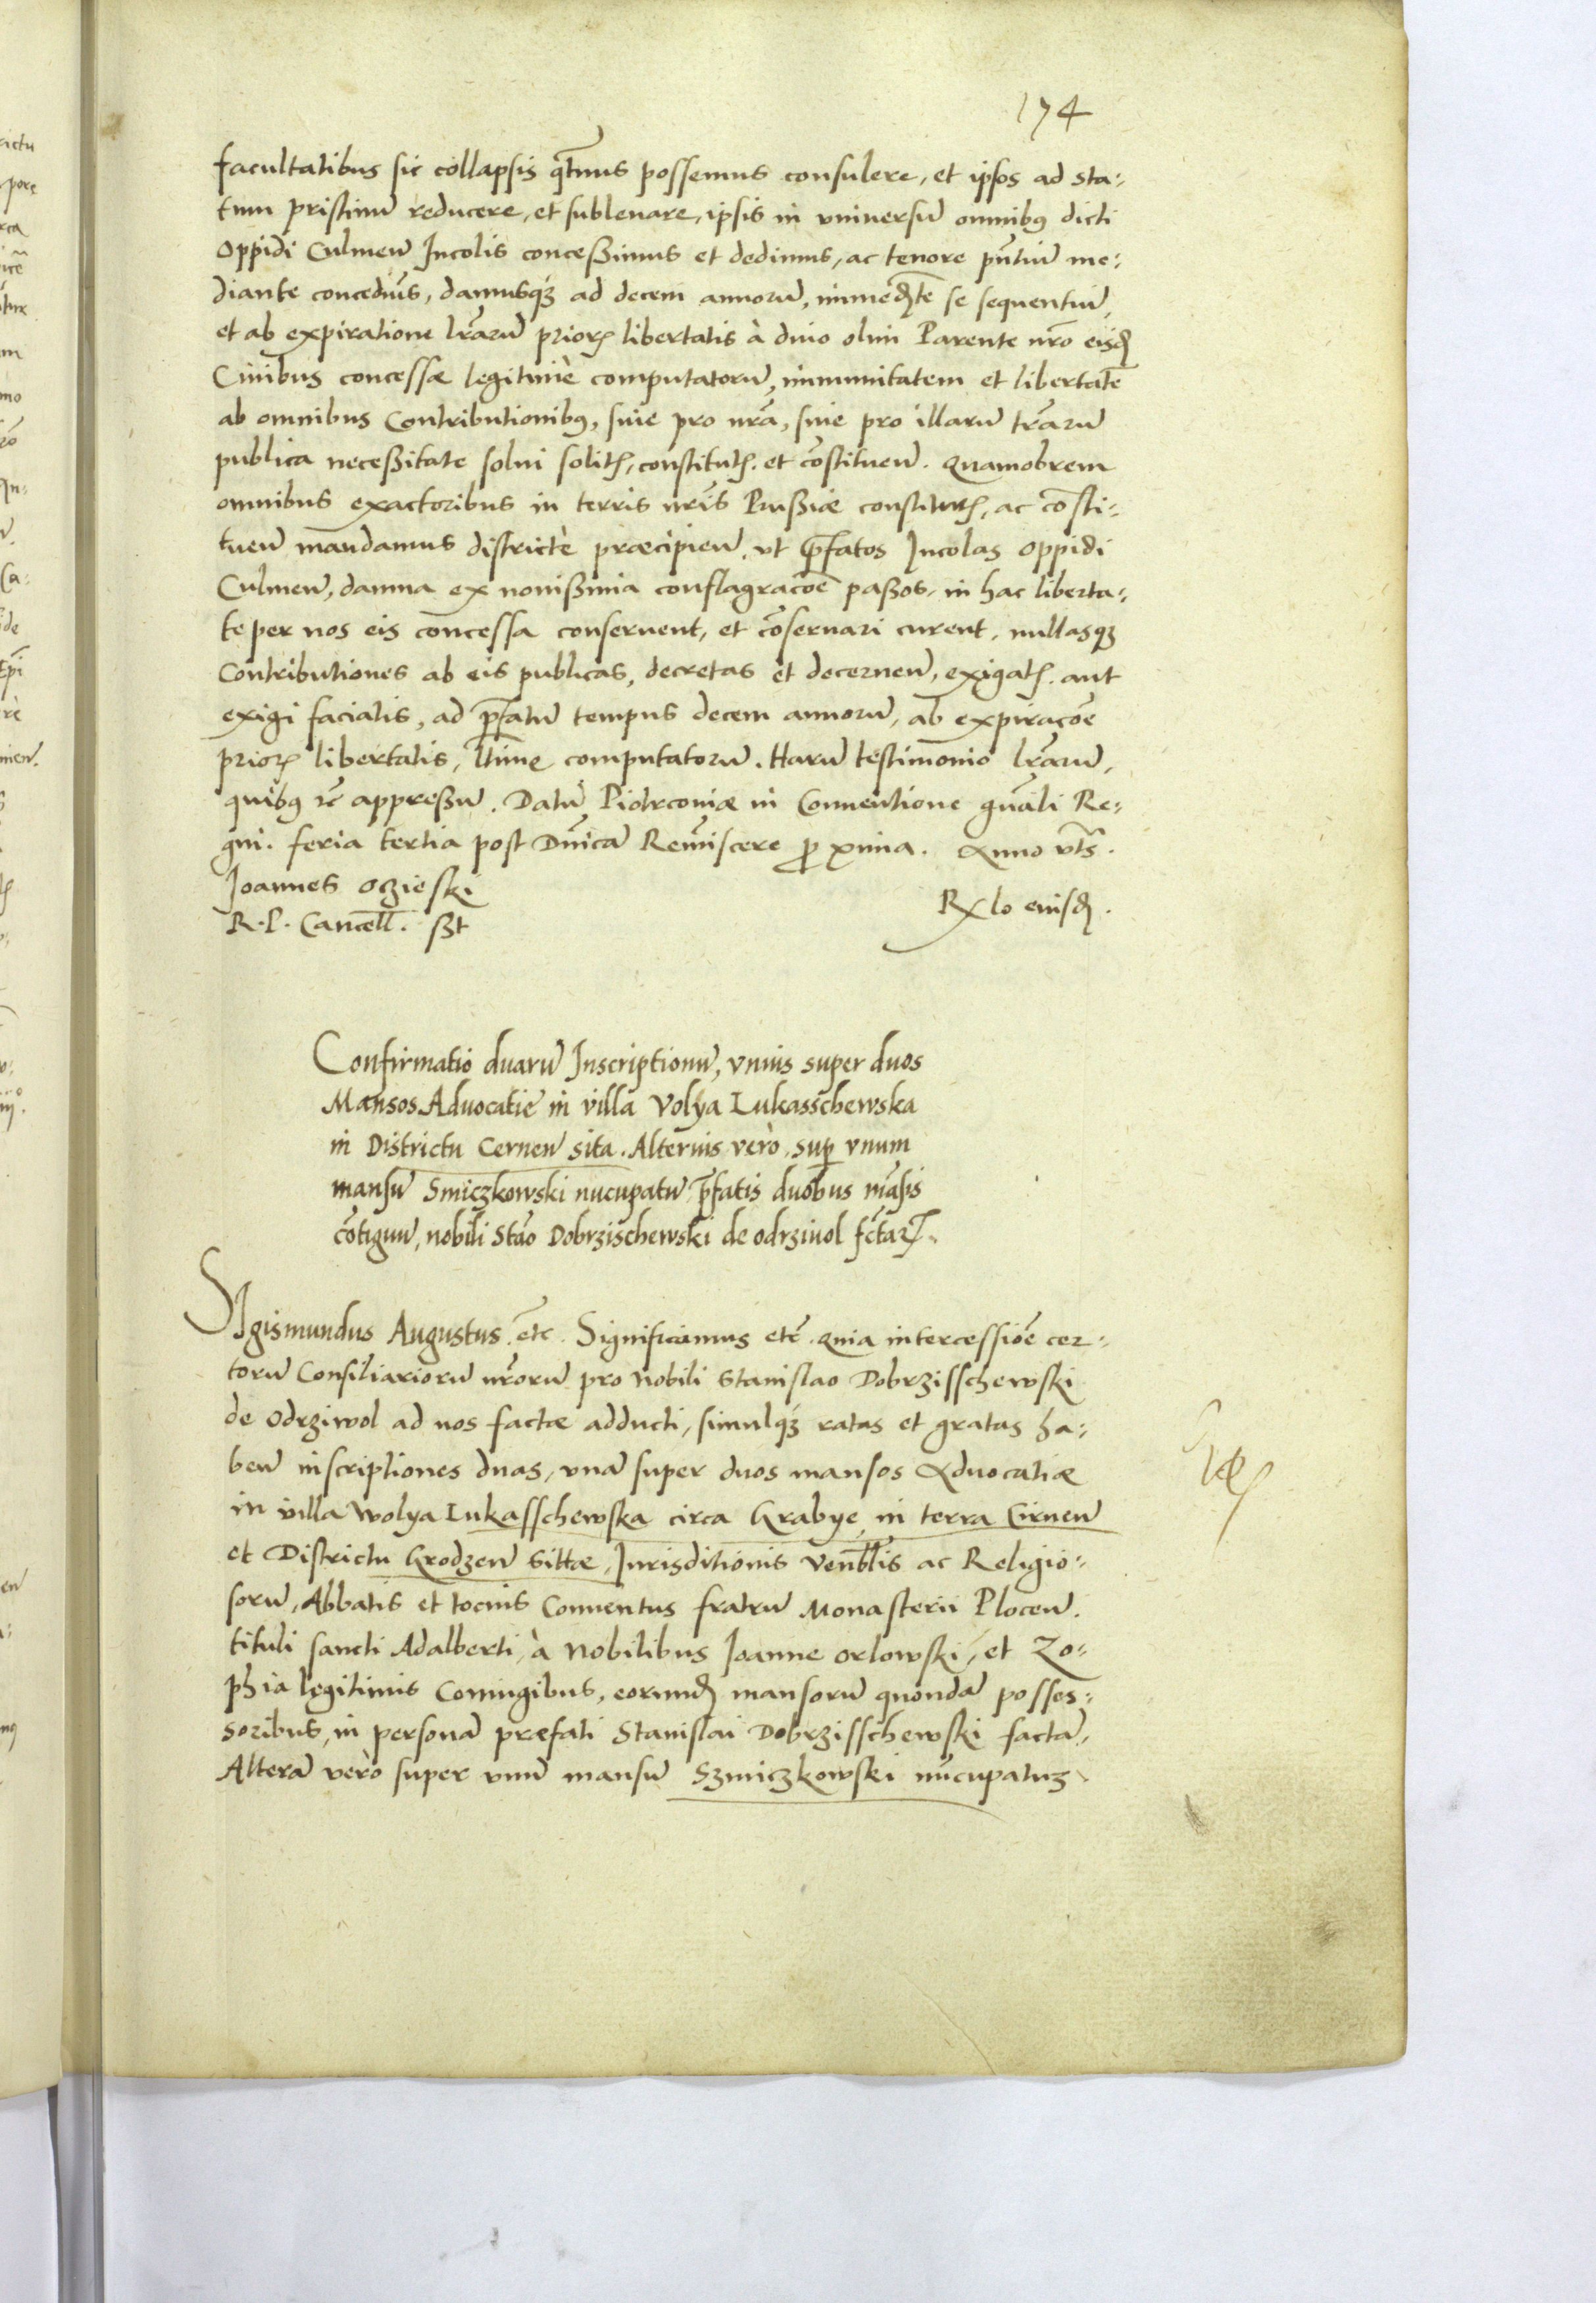 174
facultatibus sic collapsis qtnus possemus consulere, et ipsos ad sta-
tum pristinũ reducere, et subleuare, ipsis in vniuersũ omnibq dicti
Oppidi Culmen̄ Incolis conceßimus et dedimus, ac tenore pñtiũ me-
diante concedim̃s, damusq́ꝫ ad decem annorũ, immedꝭte se sequentiũ,
et ab expiratione lr̃arũ prioꝝ libertatis à diuo olim Parente nr̃o eisd̃
Ciuibus concessæ legitimè computatorũ, immunitatem et libertatẽ
ab omnibus Contributionibꝗ, siue pro nr̃a, siue pro illarũ tr̃arũ
publica neceßitate solui solitꝭ, constitutꝭ. et cõstituen̄. Quamobrem
omnibus exactoribus in terris nr̃is Prußiæ constitutꝭ, ac cõsti-
tuen̄ mandamus districtè præcipien̄, vt p̃fatos Incolas oppidi
Culmen̄, damna ex nouißima conflagracõe paßos, in hac liberta-
te per nos eis concessa conseruent, et cõseruari curent, nullasqꝫ
Contributiones ab eis publicas, decretas et decernen̄, exigatꝭ. aut
exigi faciatis, ad p̃fatũ tempus decem annorũ, ab expiracõe
prioꝝ libertatis, ltime computatorũ. Harũ testimonio lr̃arũ,
quibꝗ ꝛc̃ appreßũ. Datũ Piotrcouiæ in Conuentione gñali Re-
gni. feria tertia post Dñicã Remĩscere ꝓxima. Anno vts̃.
Joannes oczieski
R. P. Cancell̃. sßt
Rx̃lo eiusd̃.
Confirmatio duarũ Inscriptionũ, vnius super duos
Mansos Aduocatie in villa Volya Lukasschewska
in Districtu Cernen̄ sita. Alterius verò, sup̱ vnum
mansũ Smiczkowski nũcupatũ p̃fatis duobus mãsis
cõtiguũ, nobili Stão Dobrzischewski de odrziuol fc̃taꝝ.
SIgismundus Augustus. etc̃. Significamus etc̃. quia intercessiõe cer-
torũ Consiliariorũ nr̃orũ pro Nobili Stanislao Dobrzisschewski
de Odrziwol ad nos factæ adducti, simulq́ꝫ ratas et gratas ha-
ben̄ inscriptiones duas, vnã super duos mansos Aduocatiæ
in villa Wolya Lukasschewska circa Grabye in terra Cirnen̄
et Districtu Grodzen̄ sittæ, Iurisditionis Ven̄blis ac Religio-
sorũ, Abbatis et tocius Conuentus fratrũ Monasterii Plocen̄.
tituli sancti Adalberti, à Nobilibus Joanne Orlowski, et Zo-
phia legitimis Coniugibus, eorund̃ mansorũ quondã posses-
soribus, in personã præfati Stanislai Dobrzisschewski factã,
Alterã verò super vnũ mansũ Szmiczkowski nũcupatuꝫ